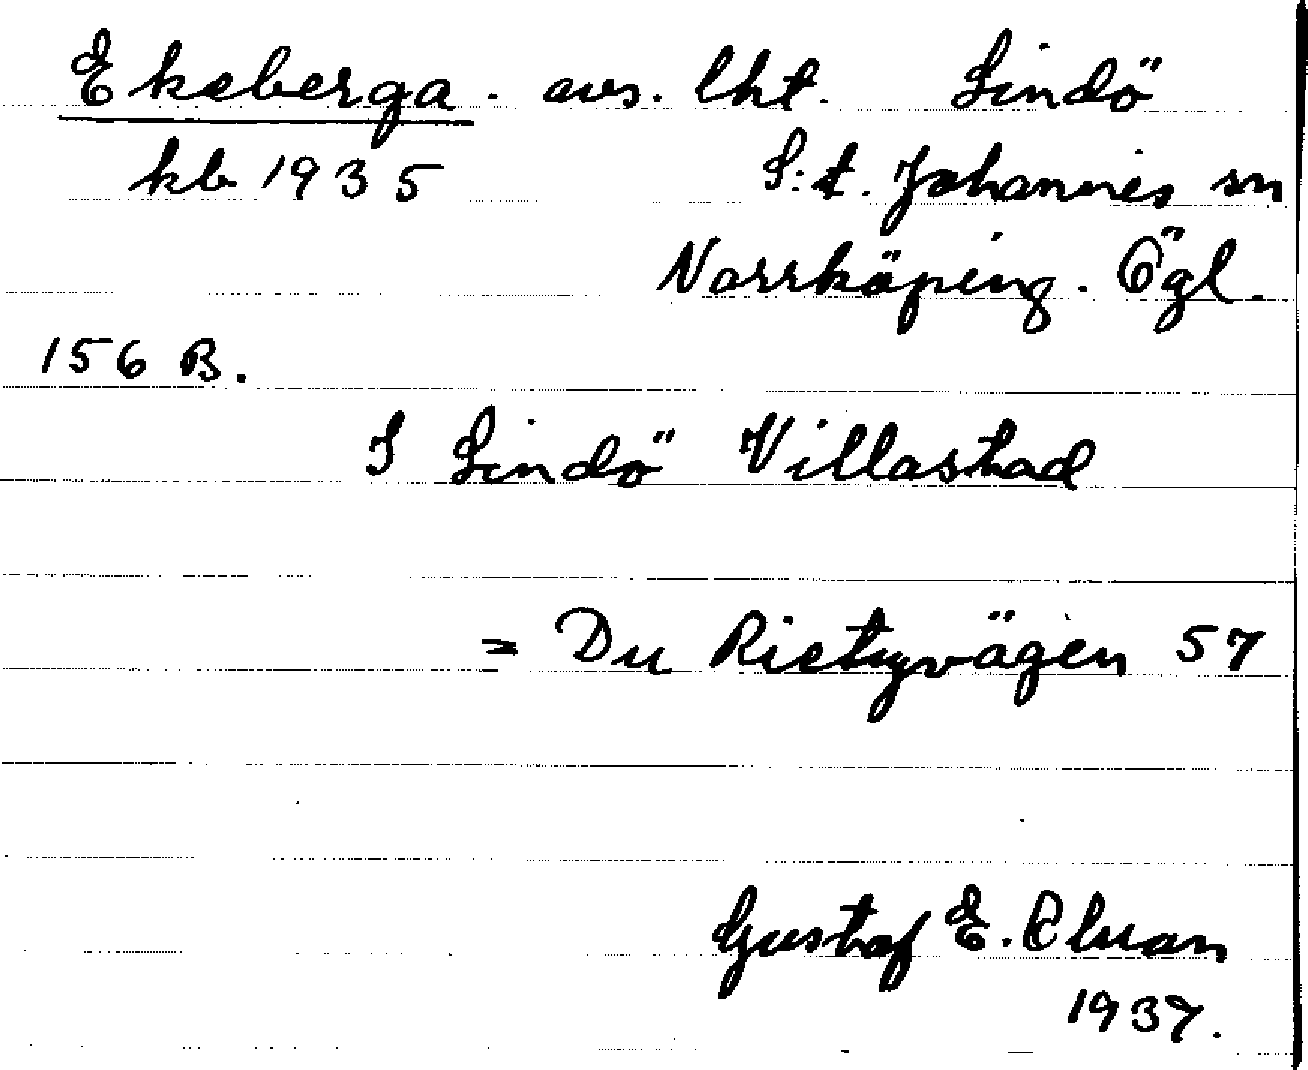 Ekeberga. avs. lht. Lindö
kb 1935 S:t. Johannes sn
Norrköping. Ögl.
156 B.
I Lindö Villastad
= Du Rietzvägen 57
Gustaf E.
1937.